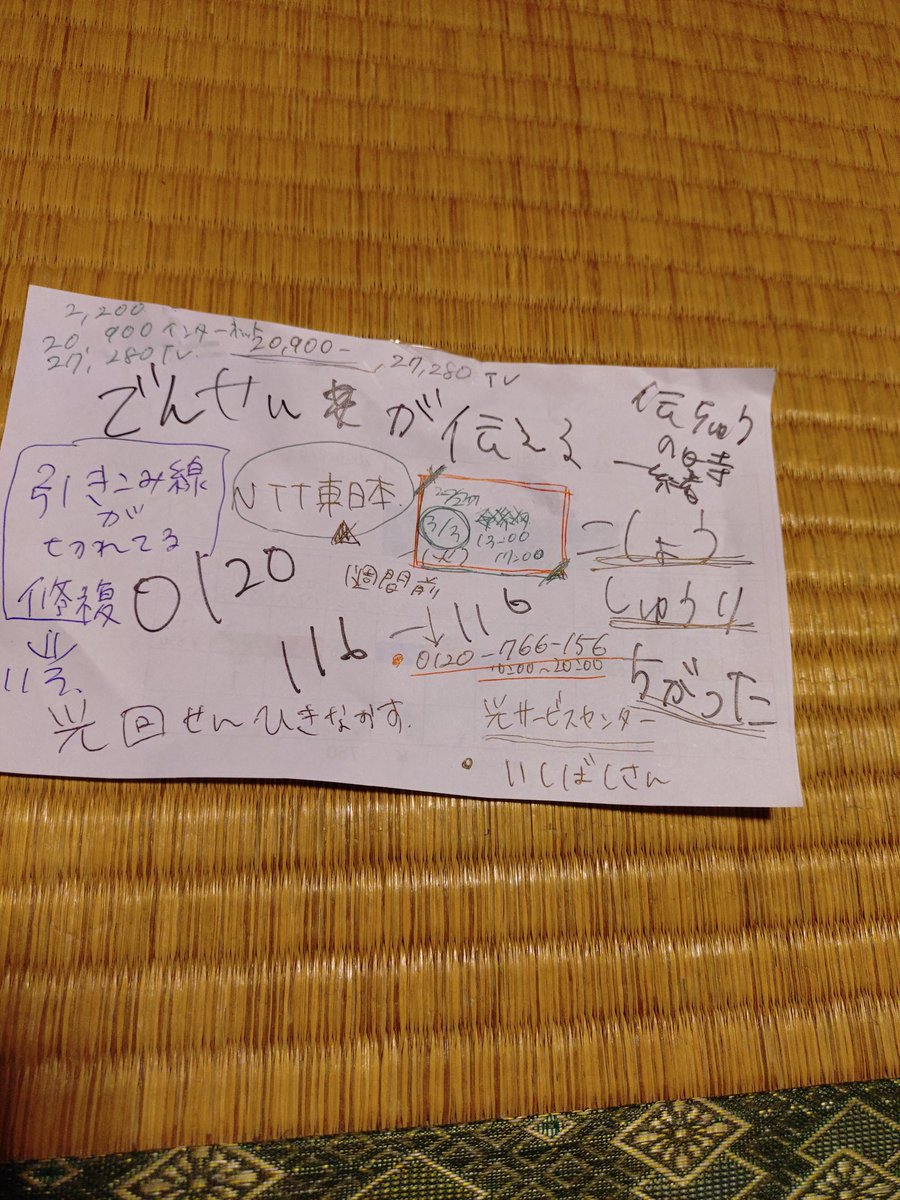 2,200
20,900 インターネット 20,900-
27,280 TV. 27,280 TV
でんせい が伝える
伝ちゅう
の時
一緒
引きこみ線
が
切れてる
修複
⇓
NTT東日本.
3/3
13:00
17:00
=しょう
しゅうり
ちがった
1週間前
0120
116 → 116
0120-766-156
10:00~20:00
光回せんひきなおす.
光サービスセンター
・いしばしさん